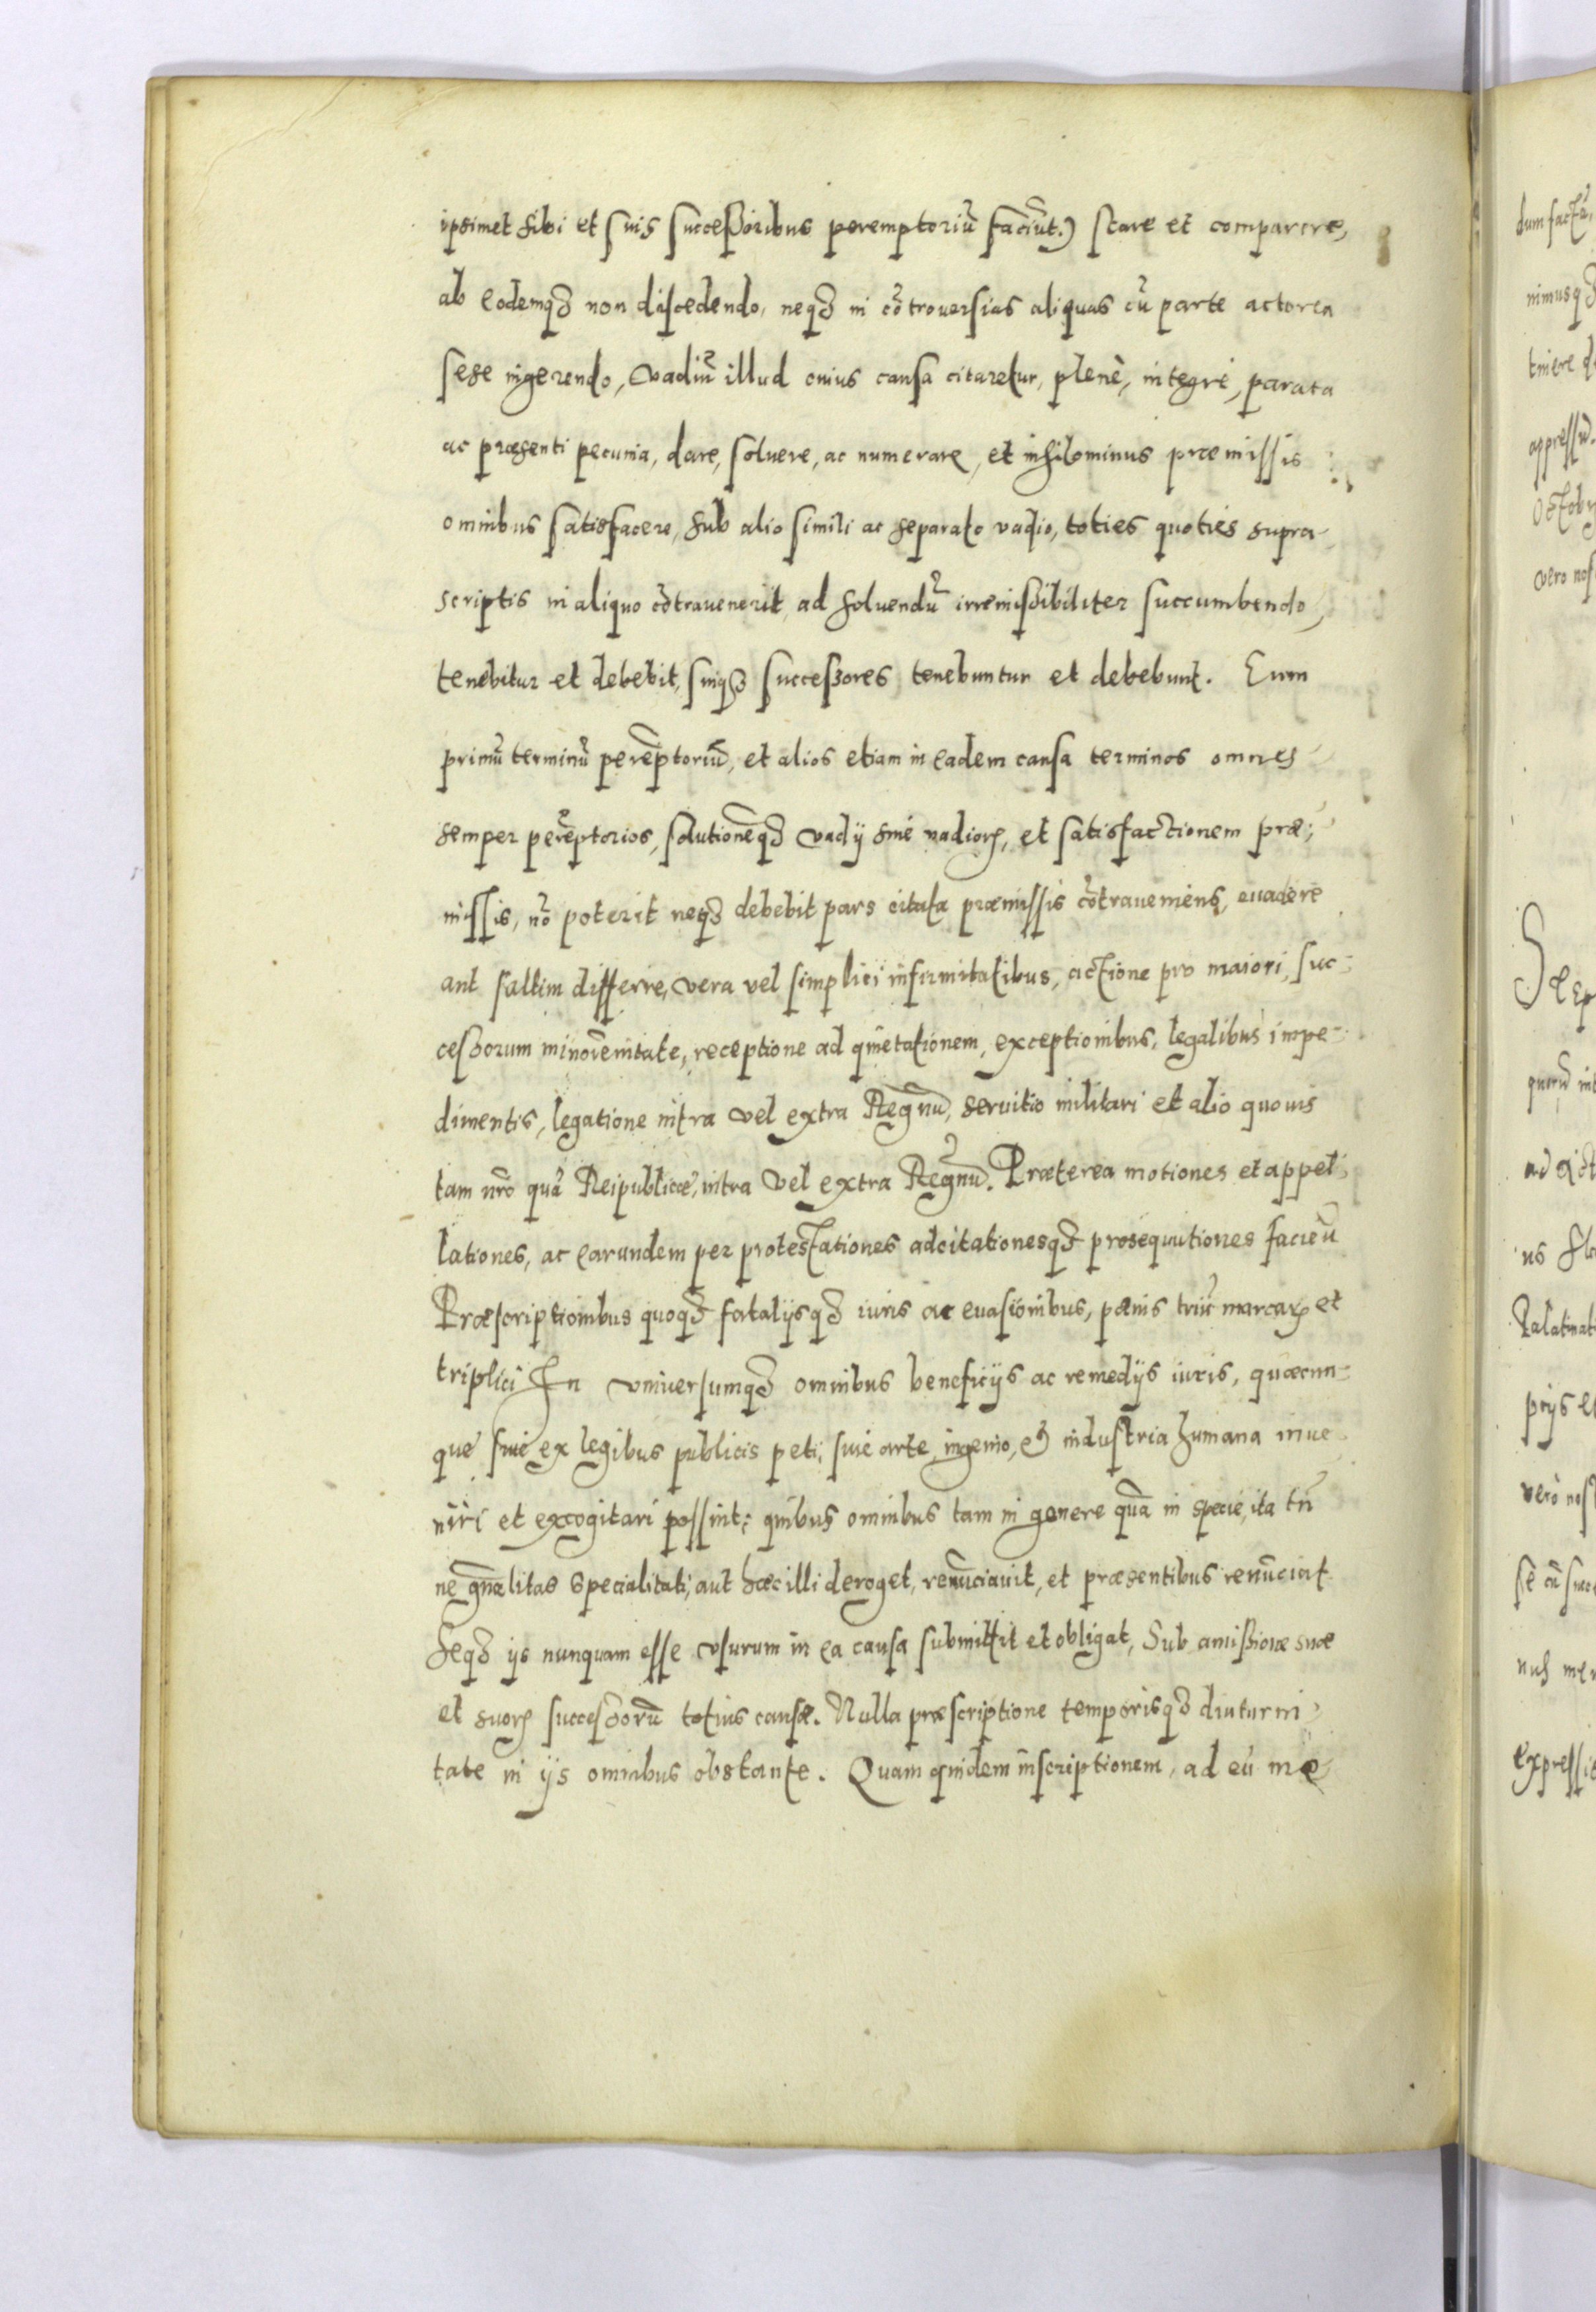 ipsimet sibi et suis successoribus peremptoriũ faciũt.) stare et comparere,
ab eodemq3 non discedendo, neq3 in cõtrouersias aliquas cũ parte actorea
sese ingerendo, vadiũ illud cuius causa citaretur, plenè, integrè, parata
ac præsenti pecunia, dare, soluere, ac numerare, et nihilominus præmissis
omnibus satisfacere, sub alio simili ac separato vadio, toties quoties supra-
scriptis in aliquo cõtrauenerit, ad soluendũ irremissibiliter succumbendo,
tenebitur et debebit, suiq3 successores tenebuntur et debebunt. Eum
primũ terminũ perẽptoriũ, et alios etiam in eadem causa terminos omnes
semper perẽptorios, solutionẽq3 vadij siue vadioꝝ, et satisfactionem præ-
missis, nõ poterit neq3 debebit pars citata præmissis cõtraueniens, euadere
aut saltim differre, vera vel simplici infirmitatibus, actione pro maiori, suc-
cessorum minorẽnitate, receptione ad quietationem, exceptionibus, legalibus impe-
dimentis, legatione intra vel extra Regnũ, seruitio militari et alio quouis
tam nr̃o quã Reipublicæ, intra vel extra Regnũ. Præterea motiones et appel-
lationes, ac earundem per protestationes adcitationesq3 prosequutiones facieñ
Præscriptionibus quoq3 fatalijsq3 iuris ac euasionibus, pænis triũ marcaꝝ et
triplici In vniuersumq3 omnibus beneficijs ac remedijs iuris, quæcun-
que siue ex legibus publicis peti, siue arte, ingenio, et industria humana inue-
niri et excogitari possint; quibus omnibus tam in genere quã in specie, ita tñ
ne gñalitas specialitati, aut hæc illi deroget, renũciauit, et præsentibus renũciat
seq3 ijs nunquam esse vsurum in ea causa submittit et obligat, Sub amissione suæ
et suoꝝ successorũ totius causæ. Nulla præscriptione temporisq3 diuturni-
tate in ijs omnibus obstante. Quam quidem inscriptionem, ad eũ mo-